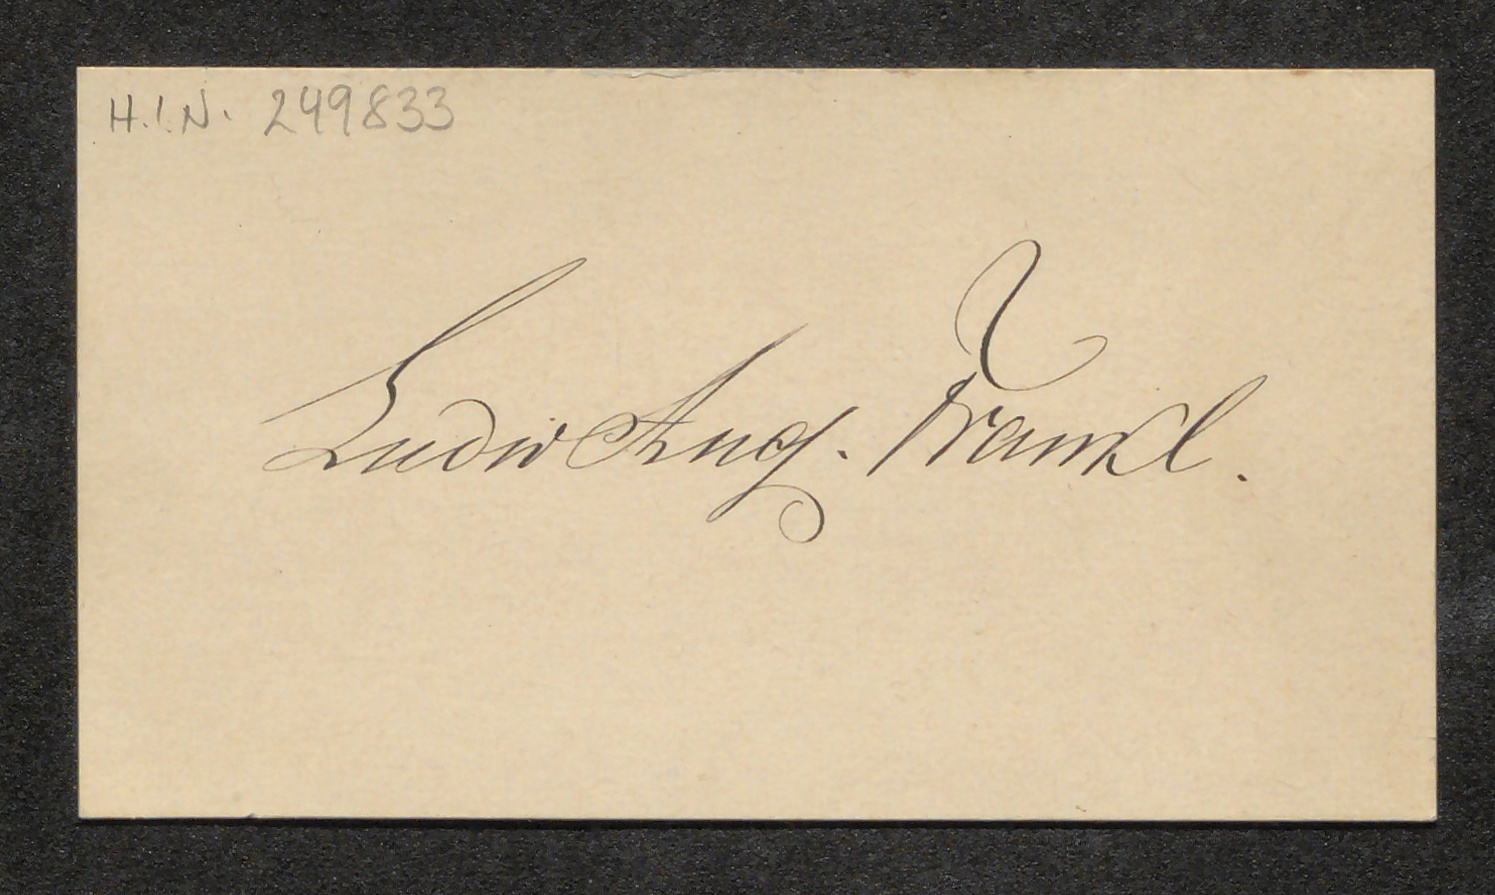 H.I.N. 249833
Ludwig Aug. Frankl.